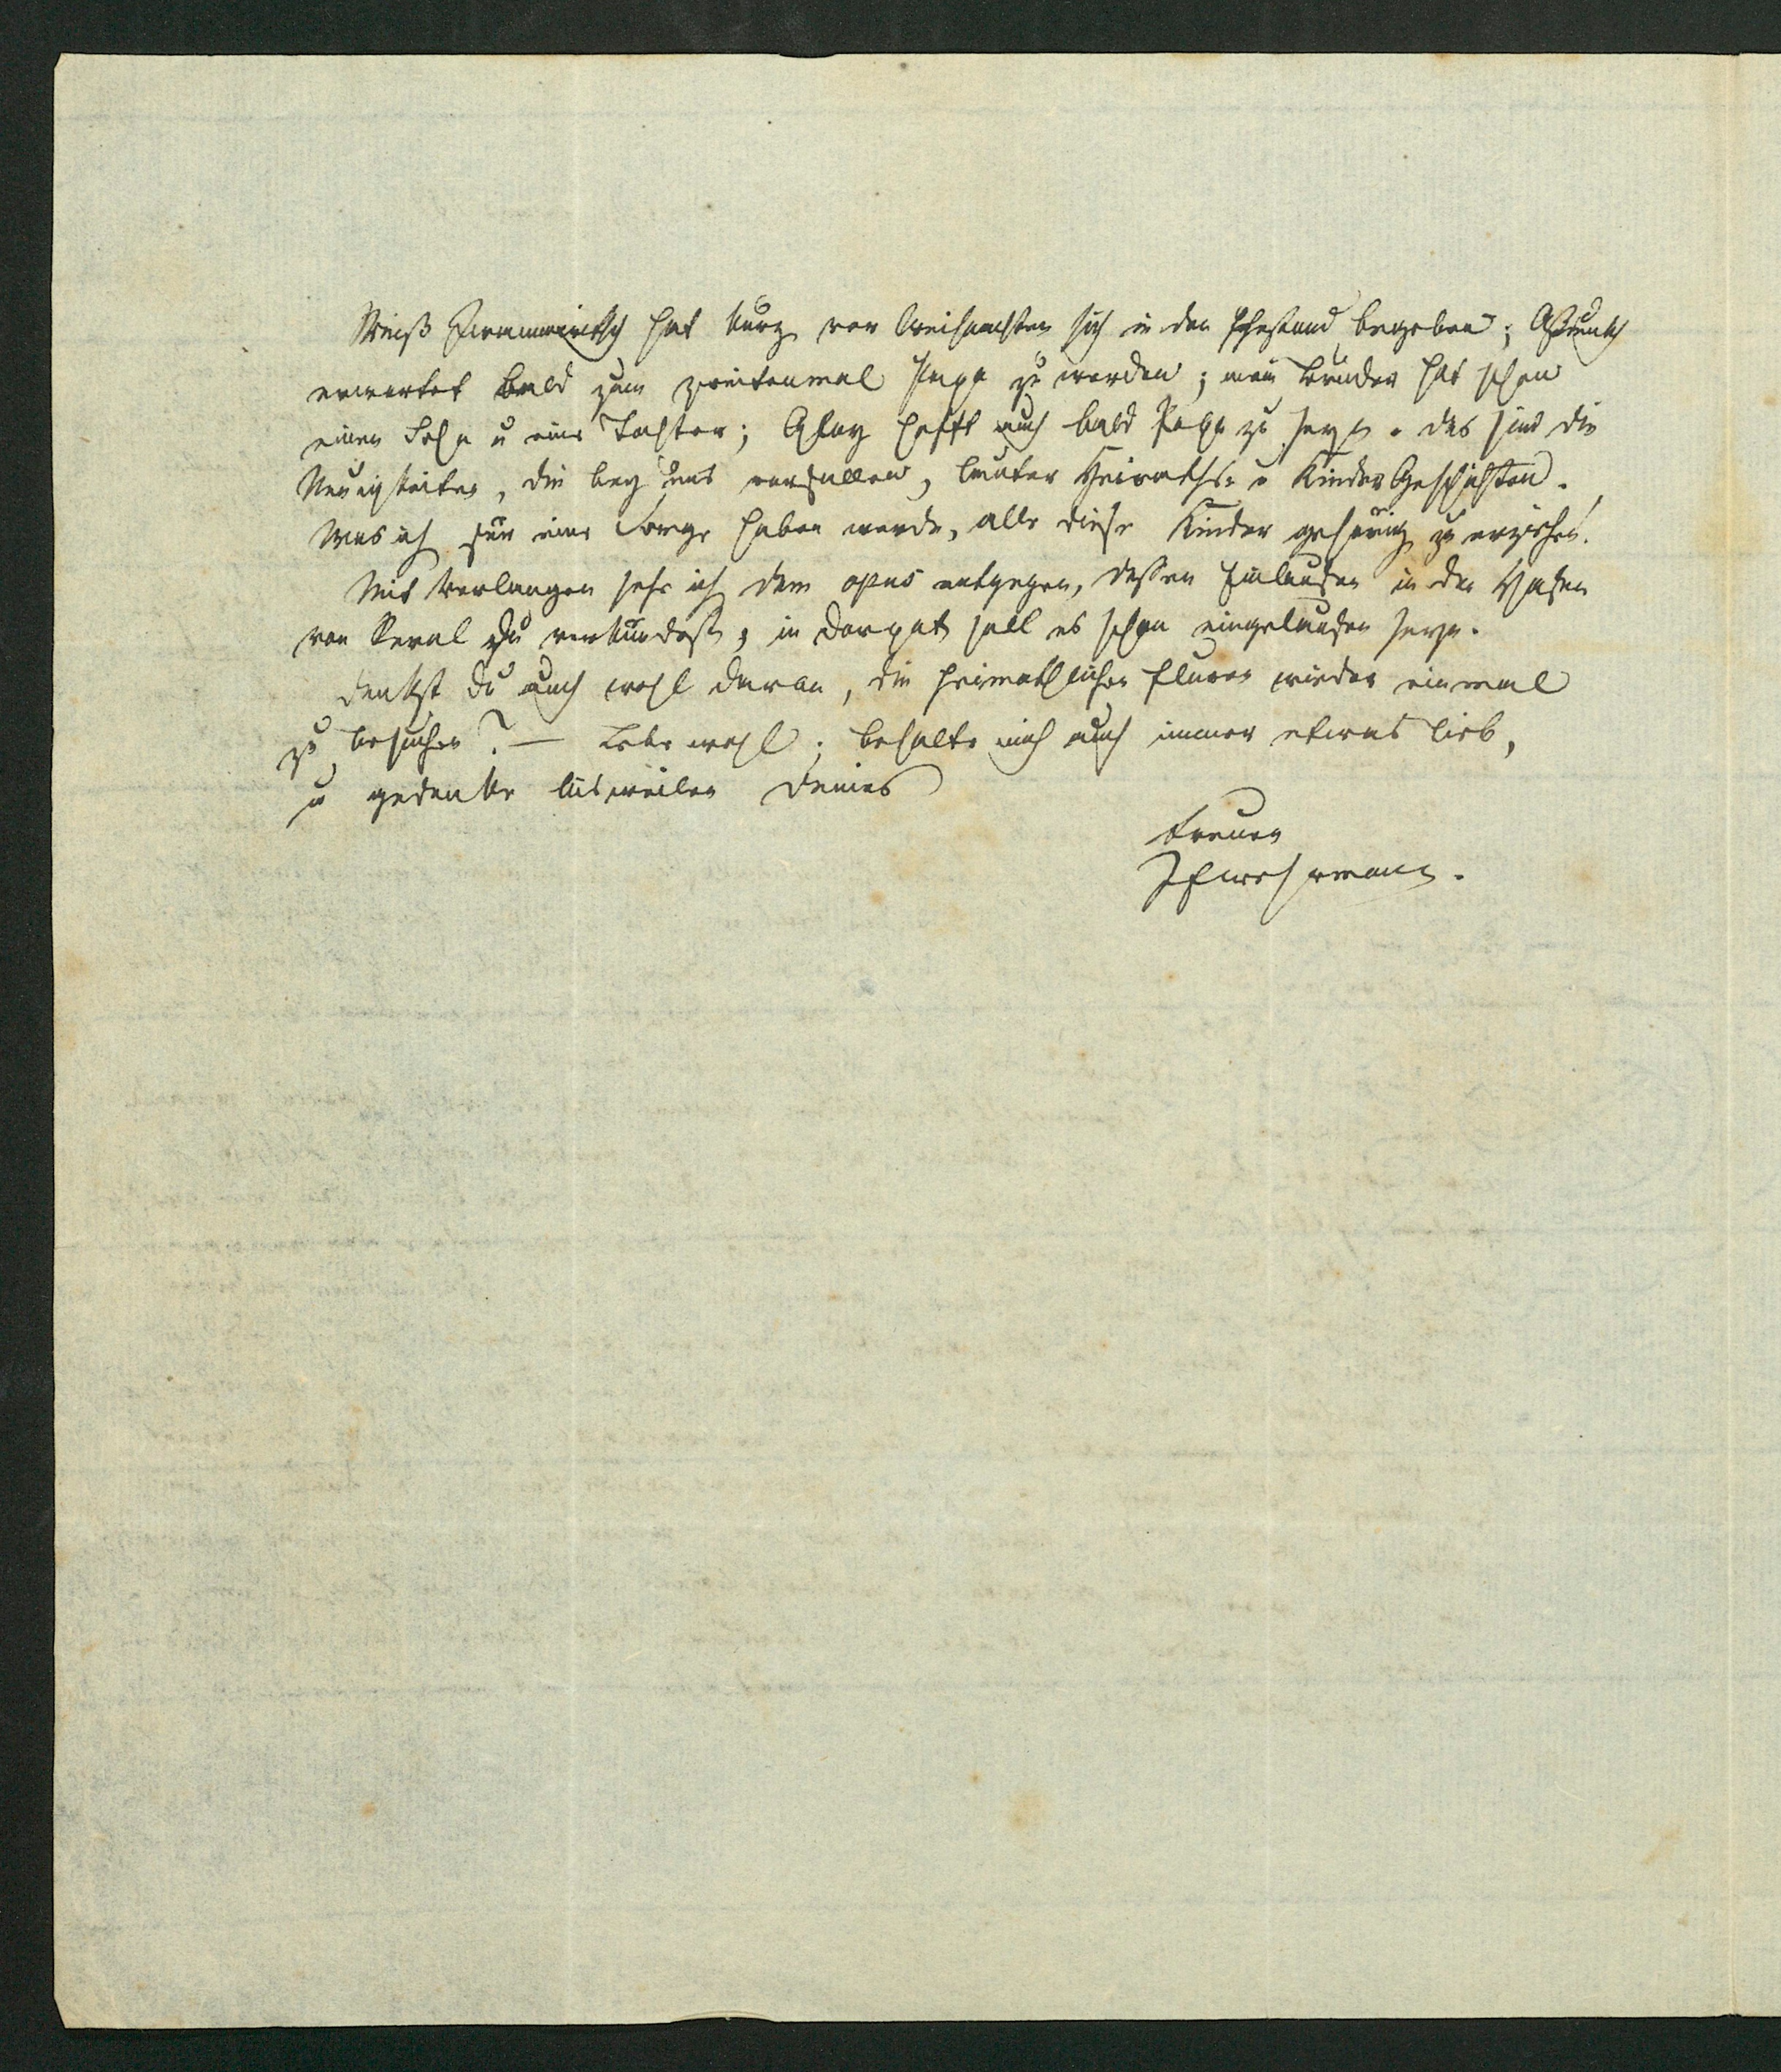 hat kurz vor Weihnachten sich in den Ehestand begeben;
erwartet bald zum zweitenmal Papa zu werden; mein Bruder hat schon
einen Sohn u eine Tochter; hofft auch bald Papa zu seyn. das sind die
Neuigkeiten, die bey uns vorfallen, lauter Heiraths- u Kinder Geschichten.
Was ich für eine Sorge haben werde, alle diese Kinder gehörig zu erziehen.
Mit Verlangen sehe ich dem opus entgegen, dessen Einlaufen in den Hafen
von Reval Du verkündest, in Dorpat soll es schon eingelaufen seyn.
Denkst Du auch wohl daran, die heimathlichen Fluren wieder einmal
zu besuchen? — Lebe wohl; behalte mich auch immer etwas lieb,
u gedenke bisweilen Deines
treuen